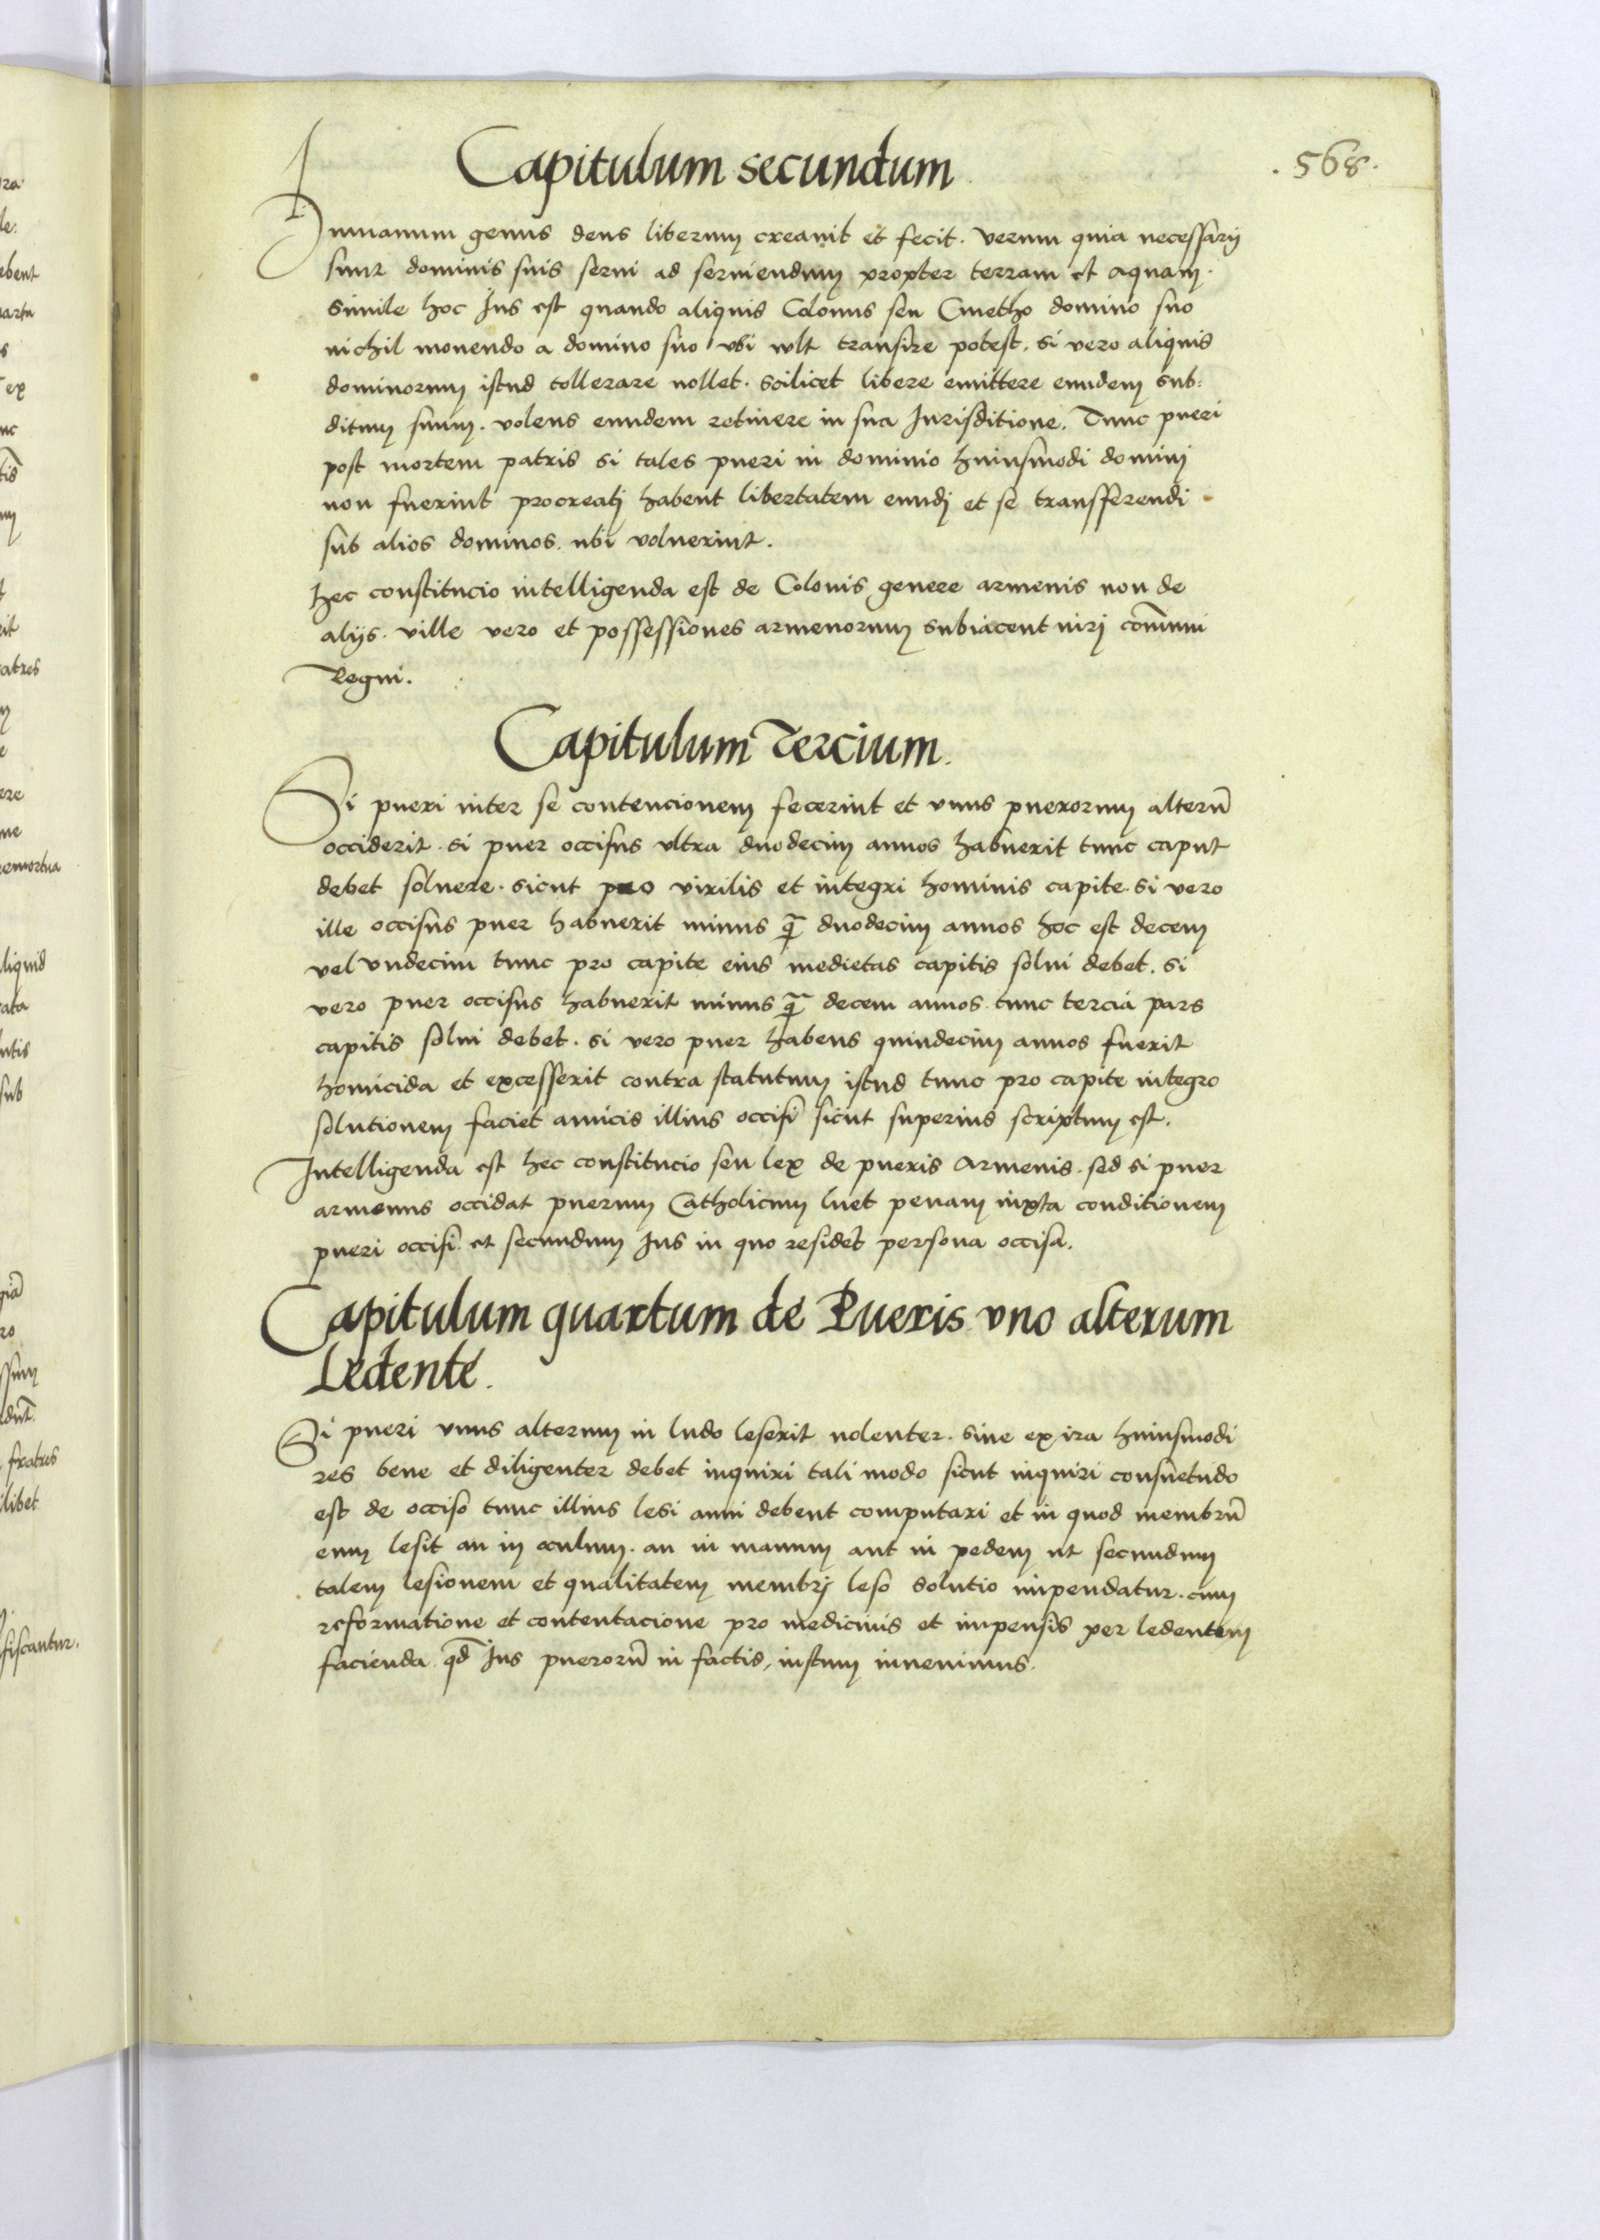 .568.
Capitulum secundum
Humanum genus deus liberum creauit et fecit. Verum quia necessarij
sunt dominis suis serui ad seruiendum propter terram et aquam.
simile hoc Ius est quando aliquis Colonus seu Cmetho domino suo
nichil monendo a domino suo vbi vult transire potest. si vero aliquis
dominorum istud tollerare nollet. scilicet libere emittere eundem sub:
ditum suum. volens eundem retinere in sua Jurisditione. Tunc pueri
post mortem patris si tales pueri in dominio huiusmodi domini
non fuerint procreati habent libertatem eundi et se transferendi
sub alios dominos. ubi voluerint.
Hec constitucio intelligenda est de Colonis genere armenis non de
alijs. ville vero et possessiones armenorum subiacent iuri com̄uni
Regni.
Capitulum Tercium.
Si pueri inter se contencionem fecerint et vnus puerorum alterū
occiderit. si puer occisus vltra duodecim annos habuerit tunc caput
debet soluere. sicut pro virilis et integri hominis capite. si vero
ille occisus puer habuerit minus q̄ duodecim annos hoc est decem
vel vndecim tunc pro capite eius medietas capitis solui debet. si
vero puer occisus habuerit minus q̄ decem annos tunc tercia pars
capitis solui debet. si vero puer habens quindecim annos fuerit
homicida et excesserit contra statutum istud tunc pro capite integro
solutionem faciet amicis illius occisi sicut superius scriptum est.
Intelligenda est hec constitucio seu lex de pueris Armenis. sed si puer
armenus occidat puerum Catholicum luet penam iuxta conditionem
pueri occisi et secundum Ius in quo residet persona occisa.
Capitulum quartum de Pueris vno alterum
Ledente.
Si pueri vnus alterum in ludo leserit nolenter. siue ex ira huiusmodi
res bene et diligenter debet inquiri tali modo sicut inquiri consuetudo
est de occiso tunc illius lesi anni debent computari et in quod membrū
eum lesit an in oculum. an in manum aut in pedem ut secundum
talem lesionem et qualitatem membri leso solutio impendatur. cum
reformatione et contentacione pro medicinis et impensis per ledentem
facienda. qd̄ Ius puerorū in factis, iustum inuenimus.